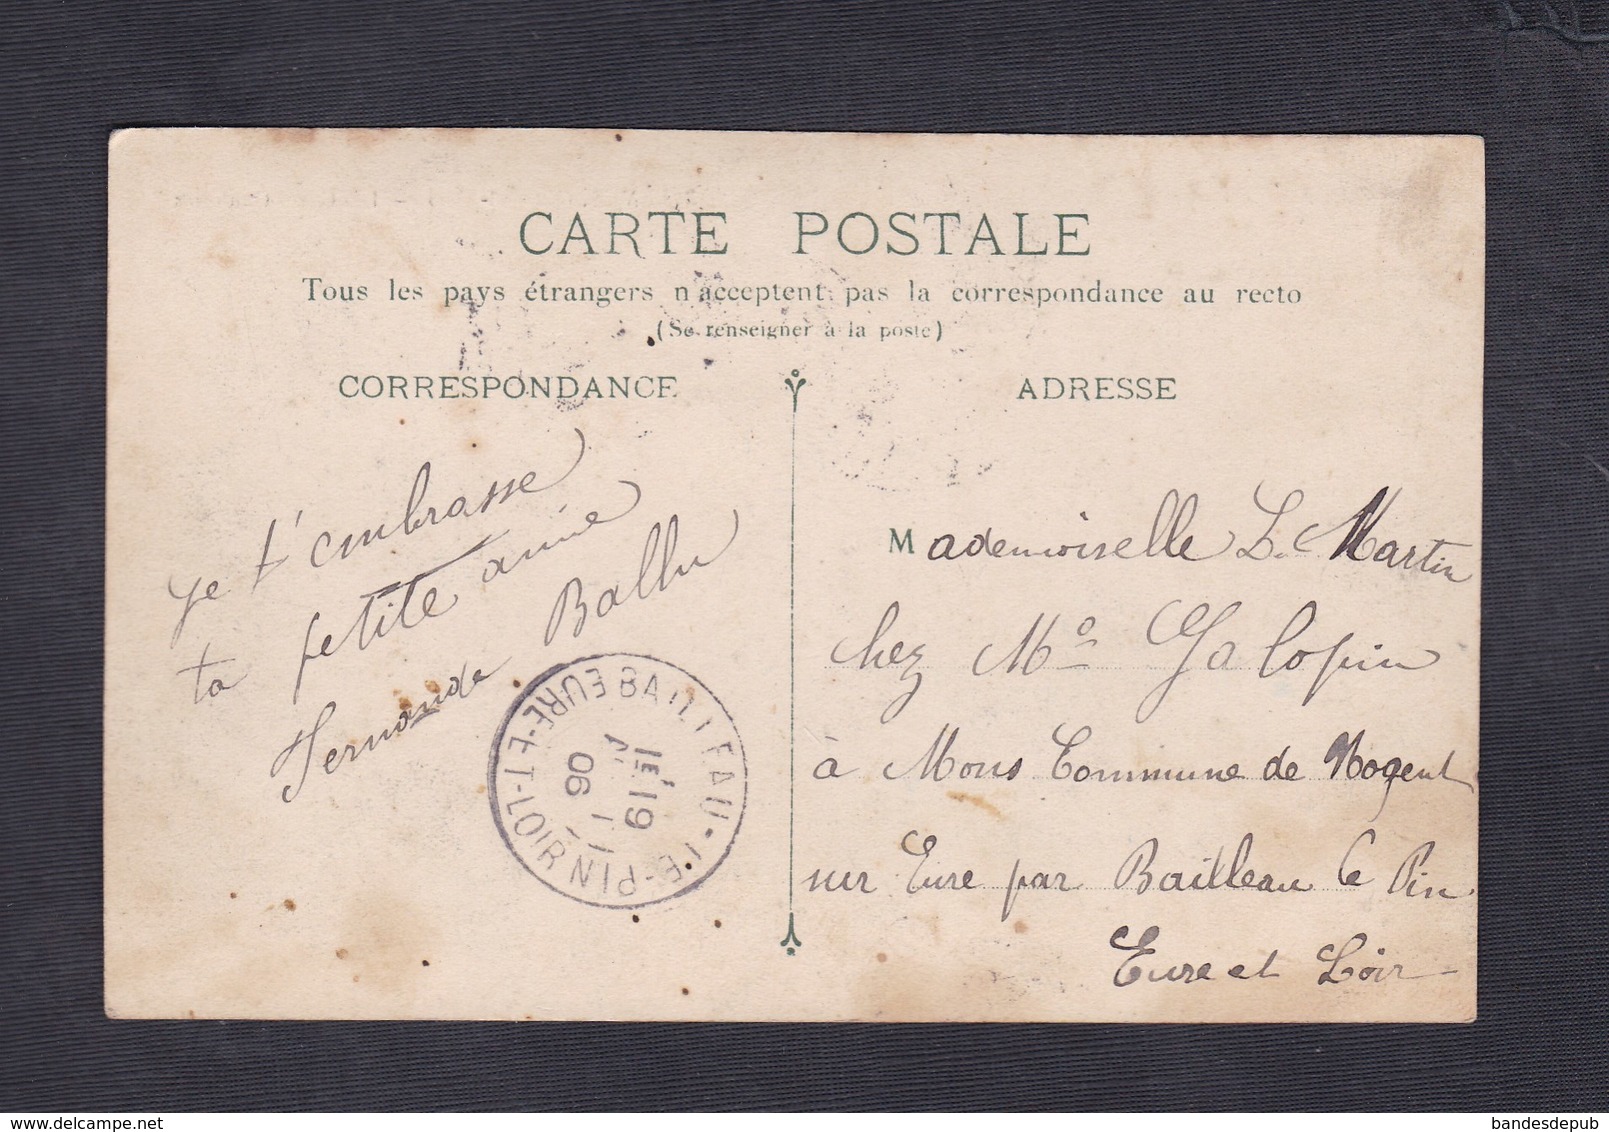 CARTE POSTALE
Tous les pays étrangers n'acceptent pas la correspondance au recto
(Se renseigner à la poste)
CORRESPONDANCE
ADRESSE
Je t'embrasse
ta petite amie
Fernande Ballu
BAILLEAU-LE-PIN
EURE-ET-LOIR
1E / 19
06
Mademoiselle L. Martin
chez Mo Galopin
à Mons Commune de Nogent
sur Eure par Bailleau le Pin
Eure et Loir
bandesdepub